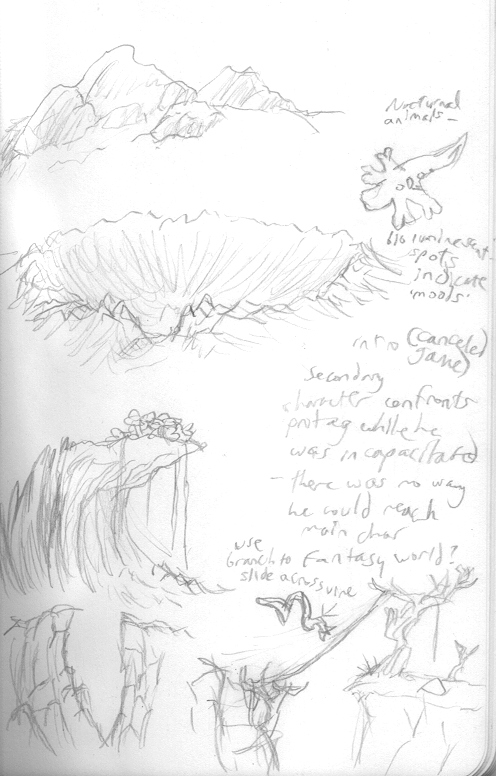 Nocturnal
animals -
bioluminescent
spots
indicate
moods.
intro (canceled
game)
Secondary
character confronts
protag while he
was incapacitated
- there was no way
he could reach
main char
Fantasy world?
use
branch to
slide across vine